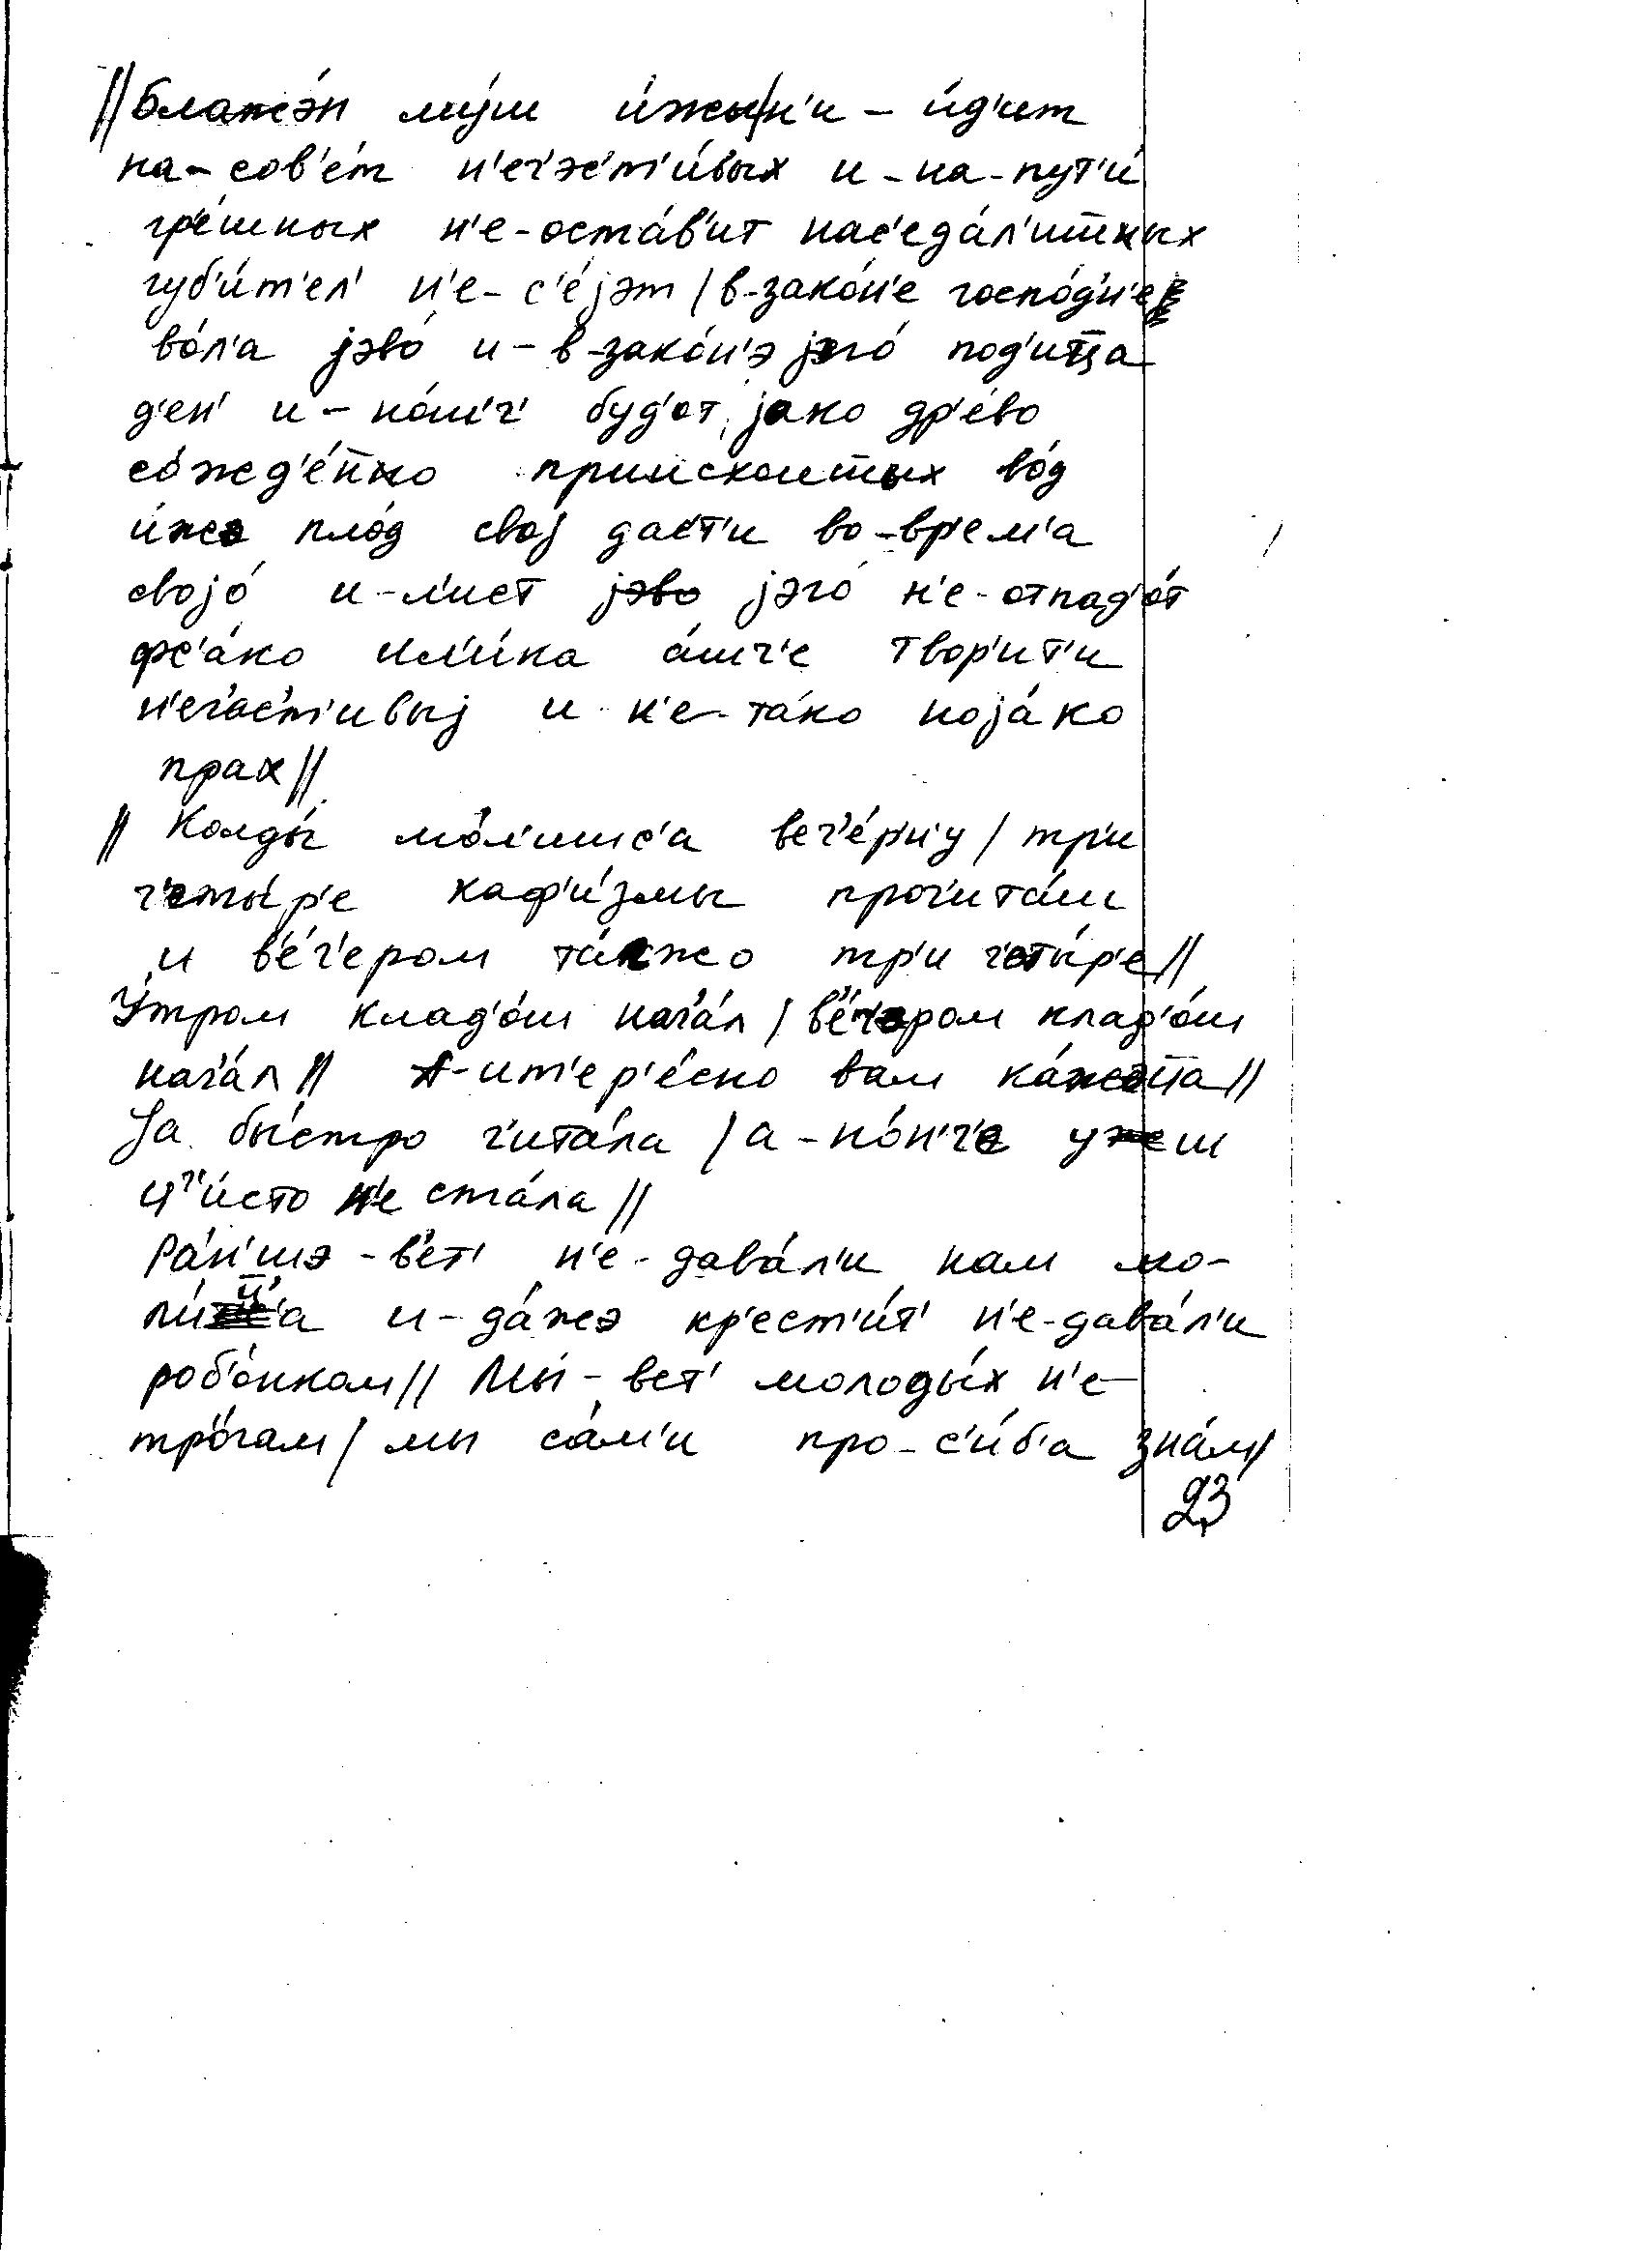 //Блажэ́н му́ш и́жы/н'и - и́д'ит
на-сов'е́т н'еч'эс'т'и́вых и-на-пут'и́
гр'е́шных н'е-оста́в'ит нас'еда́л'иш̅ных
губ'и́т'ел' н'е-с'е́jэт / в-зако́н'е госпо́д'н'е
во́л'а jэво́ и-в-зако́н'э jэго́ под'иц̅а
д'ен' и-но́ш'ч' буд'от jако др'е́во
со́жд'е́н̅но приисхоиш̅ых во́д
и́жэ пло́д своj дас'т'и во-вр'ем'а
своjо́ и-л'ист jэво jэго́ н'е-отпад'о́т
фс'а́ко ил'и́ка а́ш'ч'е твор'ит'и
н'еч'ас'т'ивыj и н'е-та́ко ноjа́ко
прах//
// Колды́ мо́л'ишс'а веч'е́р'н'у / тр'и
ч'еты́р'е каф'и́змы проч'ита́ш
и в'е́ч'ером та́кжо тр'и ч'еты́р'е//
У́тром клад'о́ш нач'а́л / в'е́ч'ером клад'о́ш
нач'а́л // А-ит'ер'е́сно вам ка́жэц̅а//
Jа бы́стро ч'ита́ла / а-но́н'ч'е уш
ч'и́сто н'е ста́ла //
Ра́н'шэ-в'ет' н'е-дава́л'и нам мо-
л'и́ц̅'а и-да́жэ кр'ест'и́т' н'е-дава́л'и
роб'о́нком// Мы́-вет' молоды́х н'е-
тро́гам / мы са́м'и про-с'и́б'а зна́м/
23